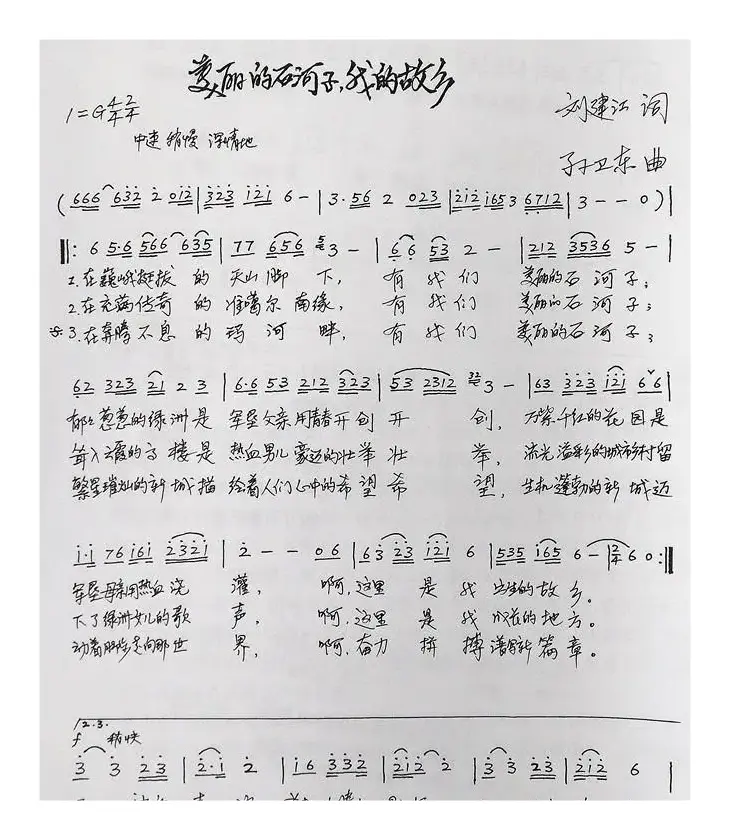 美丽的石河子,我的故乡
1=G 4/4 2/4
中速 稍慢 深情地
刘建江 词
孙卫东 曲
(666 632 2 012|323 121 6-|3·56 2 023|212 1653 6712|3--0)|
‖: 6 5·6 566 635|77 656 5 3-|66 53 2-|212 3536 5-|
1.在巍峨挺拔的天山脚下,有我们美丽的石河子;
2.在充满传奇的准噶尔南缘,有我们美丽的石河子;
※3.在奔腾不息的玛河畔,有我们美丽的石河子;
62 323 21 2 3|6·6 53 212 323|53 2312 32 3-|63 323 121 66|
郁郁葱葱的绿洲是军垦父亲用青春开创开创,万紫千红的花园是
耸入云霞的高楼是热血男儿豪迈的壮举壮举,流光溢彩的城市乡村留
繁星璀灿的新城描绘着人们心中的希望希望,生机蓬勃的新城迈
1·1 76 161 2321|2--06|63 23 121 6|535 165 6-|2/4 6 0:‖
军垦母亲用热血浇灌,啊,这里是我出生的故乡。
下了绿洲女儿的歌声,啊,这里是我成长的地方。
动着脚步走向那世界,啊,奋力拼搏谱写新篇章。
2.3.
f 稍快
3 3 23|2·1 2|16 332|212 2|3 3 23|212 6|